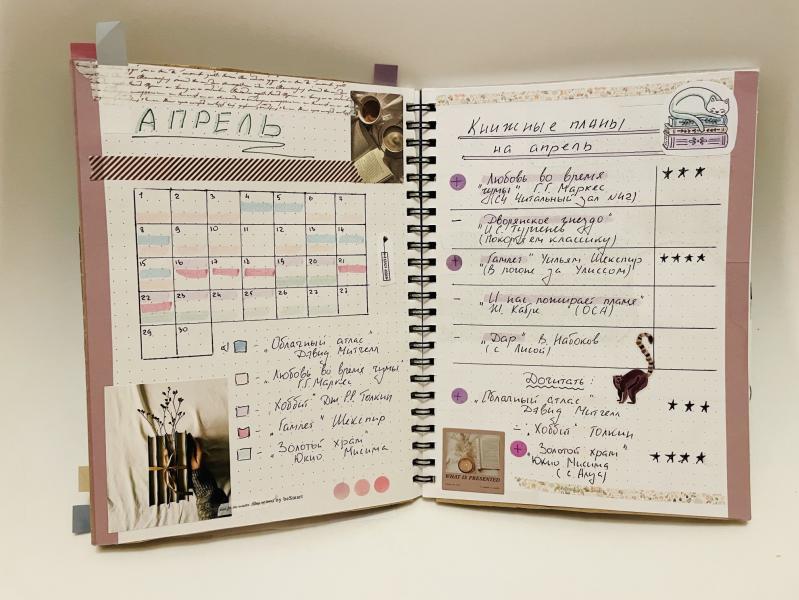 АПРЕЛЬ
1 2 3 4 5 6 7
8 9 10 11 12 13 14
15 16 17 18 19 20 21
22 23 24 25 26 27 27
29 30
- "Облачный атлас"
Дэвид Митчелл
- "Любовь во время чумы"
Г.Г. Маркес
- "Хоббит" Дж.Р.Р. Толкин
- "Гамлет" Шекспир
- "Золотой храм"
Юкио Мисима
Книжные планы
на апрель
+ Любовь во время
"чумы" Г.Г. Маркес
(СЧ Читальный зал №42)
- "Дворянское гнездо"
И.С. Тургенев
(Покоряем классику)
+ "Гамлет" Уильям Шекспир
(В погоне за Улиссом)
- "И нас пожирает пламя"
Ж. Кабре (ОСА)
- "Дар" В. Набоков
(с Лисой)
Дочитать:
+ "Облачный атлас"
Дэвид Митчелл
- "Хоббит" Толкин
+ "Золотой храм"
Юкио Мисима
(с Алуа)
WHAT IS PRESENTED